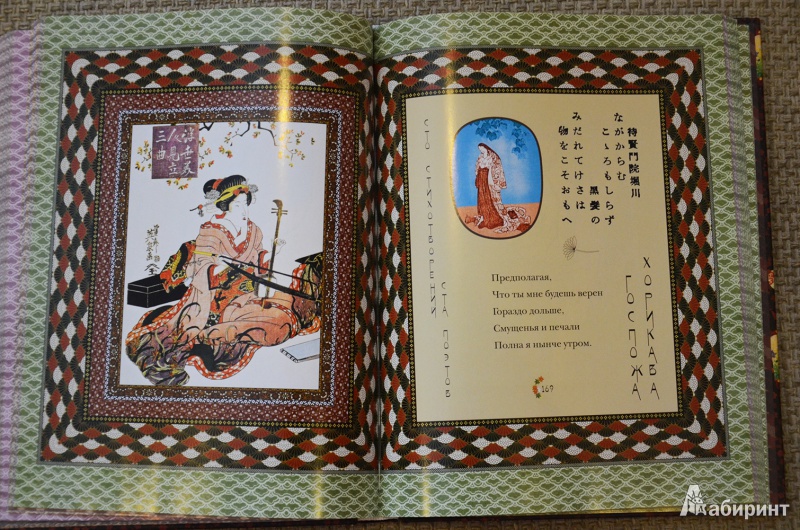 浮世美
人見立
三曲
待賢門院堀川
ながからむ
こゝろもしらず
黒髪の
みだれてけさは
物をこそおもへ
СТО СТИХОТВОРЕНИЙ
СТА ПОЭТОВ
Предполагая,
Что ты мне будешь верен
Гораздо дольше,
Смущенья и печали
Полна я нынче утром.
ГОСПОЖА
ХОРИКАВА
169
Лабиринт